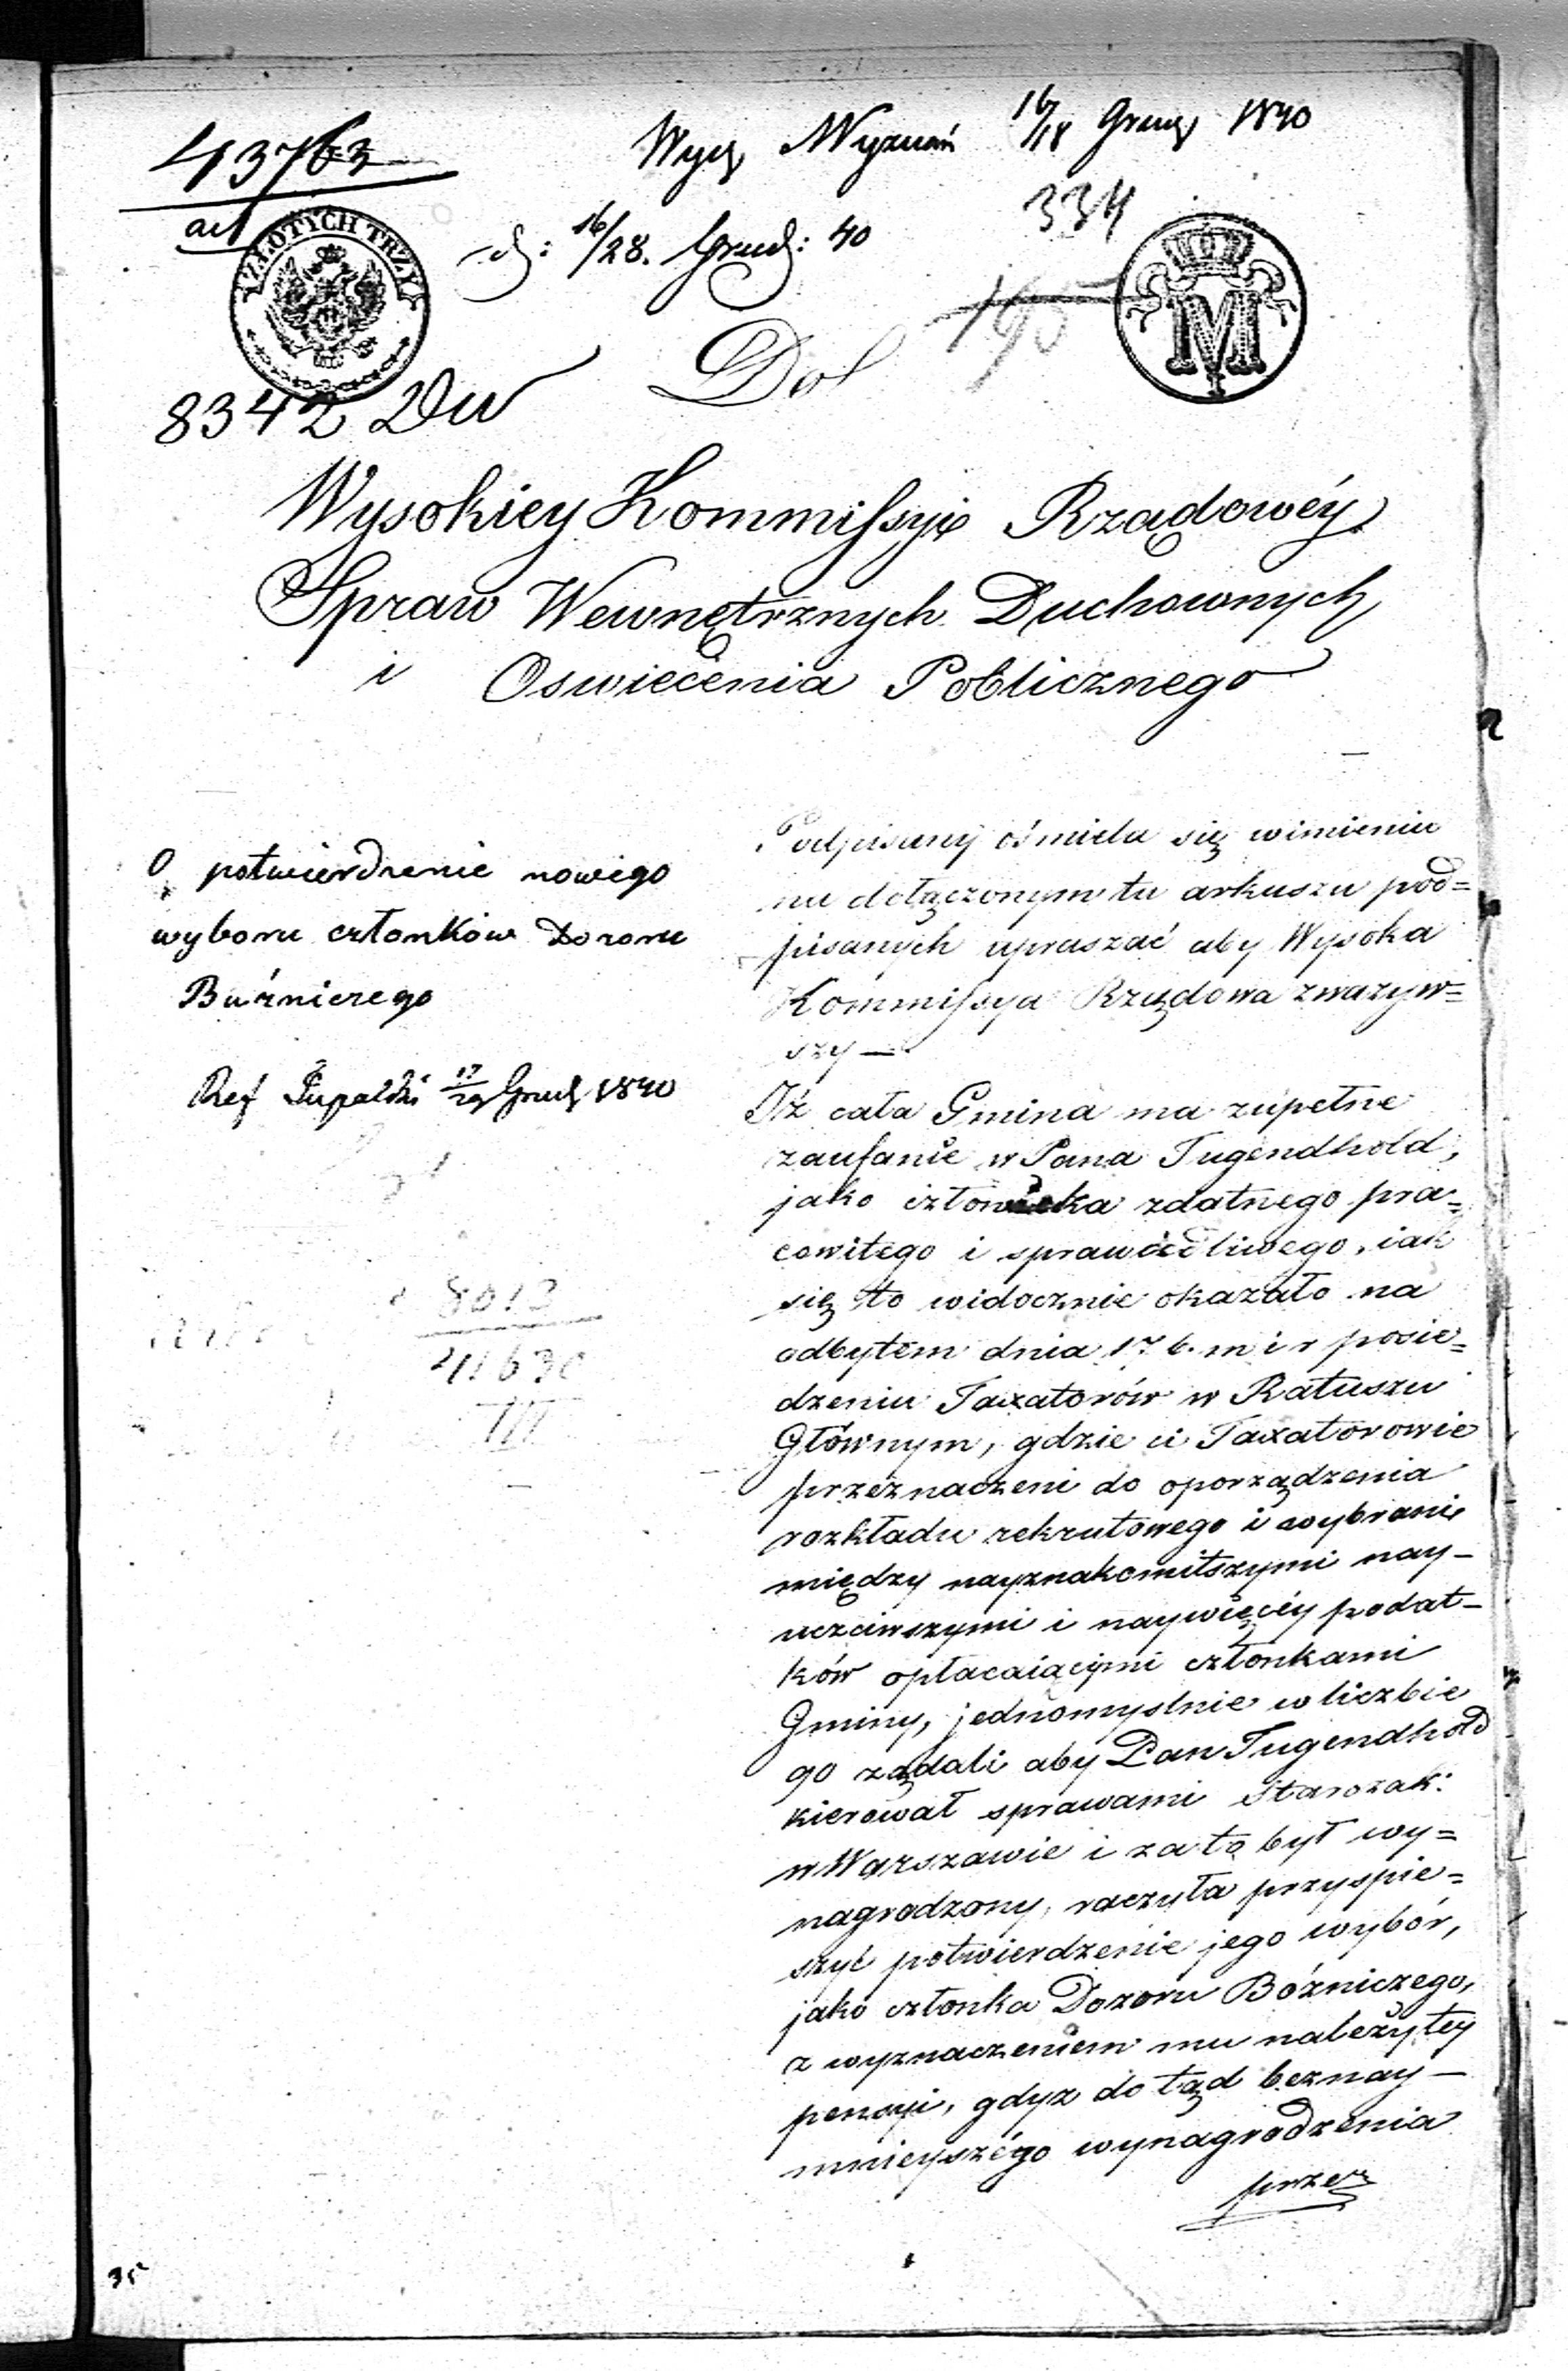 43763
Wyznań 16/18 1840
334
ZŁOTYCH TRZY
d: 16/28. Grud: 40
195
M
8342
Do
Wysokiey Kommissyi Rządowéy
Spraw Wewnętrznych Duchownych
i Oswiecenia Poblicznego
O potwierdzenie nowego
wyboru członków Dozoru
Buźniczego
Ref 17/29 Grud 1840
8013
41630
III
Podpisany ośmiela się wimieniu
na dołączonym tu arkuszu pod=
pisanych upraszać aby Wysoka
Kommissya Rządowa zwazyw=
szy —
Iż cała Gmina ma zupełne
zaufanie w Pana Tugendhold,
jako człowieka zdatnego pra=
cowitego i sprawiedliwego, iak
się to widocznie okazało na
odbytém dnia 17 b. m i r posie=
dzeniu Taxatorów w Ratuszu
Głównym, gdzie ci Taxatorowie
przeznaczeni do oporządzenia
rozkładu rekrutowego i wybranie
między nayznakomitszymi nay-
uczciwszymi i naywięcéy podat-
ków opłacaiącymi członkami
Gminy, jednomyslnie w liczbie
90 ządali aby Pan Tugendhold
kierował sprawami Starozak:
w Warszawie i za to był wy=
nagrodzony, raczyła przyspie=
szyć potwierdzenie jego wybór,
jako członka Dozoru Bóźniczego,
z wyznaczeniem mu należytey
pensyi, gdyz do tąd beznay-
mnieyszégo wynagrodzenia
przez
35